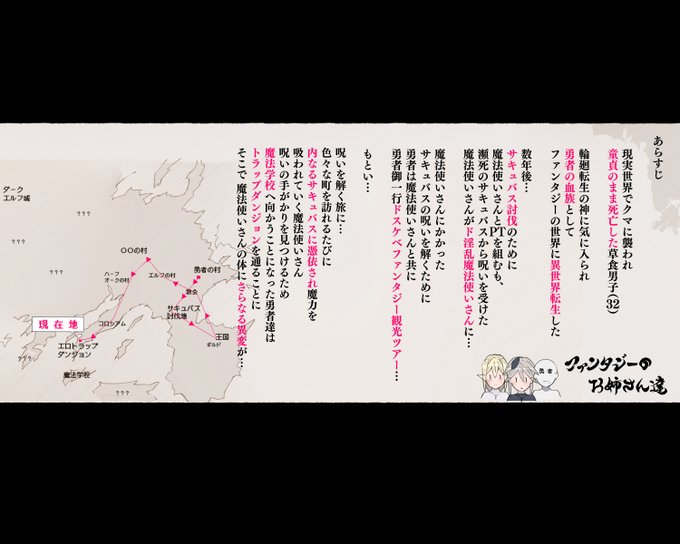 あらすじ
現実世界でクマに襲われ
童貞のまま死亡した草食男子(32)
輪廻転生の神に気に入られ
勇者の血族として
ファンタジーの世界に異世界転生した
数年後…
サキュバス討伐のために
魔法使いさんとPTを組むも、
瀕死のサキュバスから呪いを受けた
魔法使いさんがド淫乱魔法使いさんに…
魔法使いさんにかかった
サキュバスの呪いを解くために
勇者は魔法使いさんと共に
勇者御一行ドスケベファンタジー観光ツアー…
もとい…
呪いを解く旅に…
色々な町を訪れるたびに
内なるサキュバスに憑依され魔力を
吸われていく魔法使いさん
呪いの手がかりを見つけるため
魔法学校へ向かうことになった勇者達は
トラップダンジョンを通ることに
そこで魔法使いさんの体にさらなる異変が…
勇者
ファンタジーの
お姉さん達
ダーク
エルフ城
???
???
???
〇〇の村
エルフの村
勇者の村
教会
ハーフ
オークの村
サキュバス
討伐地
コロシアム
王国
ギルド
現在地
エロトラップ
ダンジョン
???
魔法学校
???